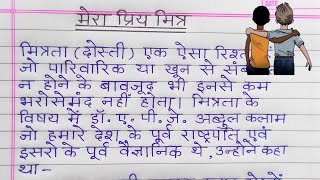 मेरा प्रिय मित्र
मित्रता (दोस्ती) एक ऐसा
जो पारिवारिक या खून से
न होने के बावजूद भी इनसे कम
भरोसेमंद नहीं होता। मित्रता के
विषय में डॉ. ए. पी. जे. अब्दुल कलाम
जो हमारे देश के पूर्व राष्ट्रपति एवं
इसरो के पूर्व वैज्ञानिक थे, उन्होंने कहा
था-